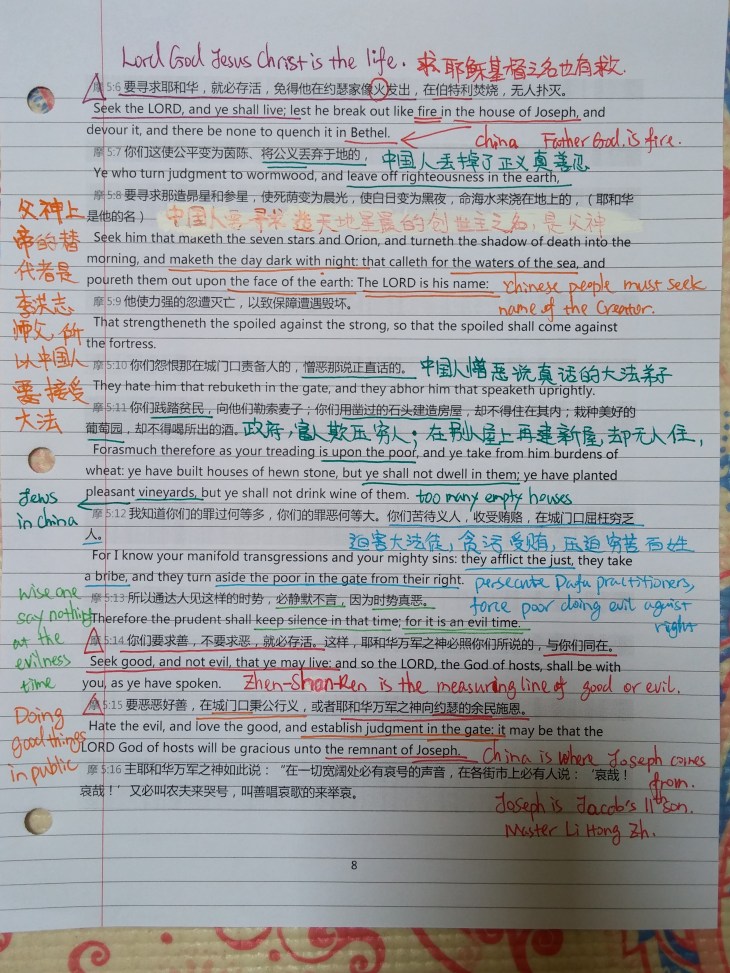 Lord God Jesus Christ is the life. 求耶稣基督之名也有救.
摩 5:6 要寻求耶和华，就必存活，免得他在约瑟家像火发出，在伯特利焚烧，无人扑灭。
Seek the LORD, and ye shall live; lest he break out like fire in the house of Joseph, and
devour it, and there be none to quench it in Bethel.
China Father God is fire.
摩 5:7 你们这使公平变为茵陈、将公义丢弃于地的，
中国人丢掉了正义真善忍
Ye who turn judgment to wormwood, and leave off righteousness in the earth,
摩 5:8 要寻求那造昴星和参星，使死荫变为晨光，使白日变为黑夜，命海水来浇在地上的，（耶和华
是他的名）
中国人要寻求造天地星辰的创世主之名，是父神
Seek him that maketh the seven stars and Orion, and turneth the shadow of death into the
morning, and maketh the day dark with night: that calleth for the waters of the sea, and
poureth them out upon the face of the earth: The LORD is his name:
Chinese people must seek
name of the Creator.
父神上
帝的替
代者是
李洪志
师父，所
以中国人
要接受
大法
摩 5:9 他使力强的忽遭灭亡，以致保障遭遇毁坏。
That strengtheneth the spoiled against the strong, so that the spoiled shall come against
the fortress.
摩 5:10 你们怨恨那在城门口责备人的，憎恶那说正直话的。
中国人憎恶说真话的大法弟子
They hate him that rebuketh in the gate, and they abhor him that speaketh uprightly.
摩 5:11 你们践踏贫民，向他们勒索麦子；你们用凿过的石头建造房屋，却不得住在其内；栽种美好的
葡萄园，却不得喝所出的酒。
政府，富人欺压穷人；在别人屋上再建新屋，却无人住，
Forasmuch therefore as your treading is upon the poor, and ye take from him burdens of
wheat: ye have built houses of hewn stone, but ye shall not dwell in them; ye have planted
pleasant vineyards, but ye shall not drink wine of them.
too many empty houses
Jews
in china
摩 5:12 我知道你们的罪过何等多，你们的罪恶何等大。你们苦待义人，收受贿赂，在城门口屈枉穷乏
人。
迫害大法徒，贪污受贿，压迫穷苦百姓
For I know your manifold transgressions and your mighty sins: they afflict the just, they take
a bribe, and they turn aside the poor in the gate from their right.
persecute Dafa practitioners,
force poor doing evil aguist
right
摩 5:13 所以通达人见这样的时势，必静默不言，因为时势真恶。
Therefore the prudent shall keep silence in that time; for it is an evil time.
wise one
say nothing
at the
evilness
time
摩 5:14 你们要求善，不要求恶，就必存活。这样，耶和华万军之神必照你们所说的，与你们同在。
Seek good, and not evil, that ye may live: and so the LORD, the God of hosts, shall be with
you, as ye have spoken.
Zhen-Shan-Ren is the measuring line of good or evil.
摩 5:15 要恶恶好善，在城门口秉公行义，或者耶和华万军之神向约瑟的余民施恩。
Hate the evil, and love the good, and establish judgment in the gate: it may be that the
LORD God of hosts will be gracious unto the remnant of Joseph.
Doing
good things
in public
China is where Joseph comes
from.
Joseph is Jacob's 11th son.
Master Li Hong Zh.
摩 5:16 主耶和华万军之神如此说：“在一切宽阔处必有哀号的声音，在各街市上必有人说：‘哀哉！
哀哉！’又必叫农夫来哭号，叫善唱哀歌的来举哀。
8